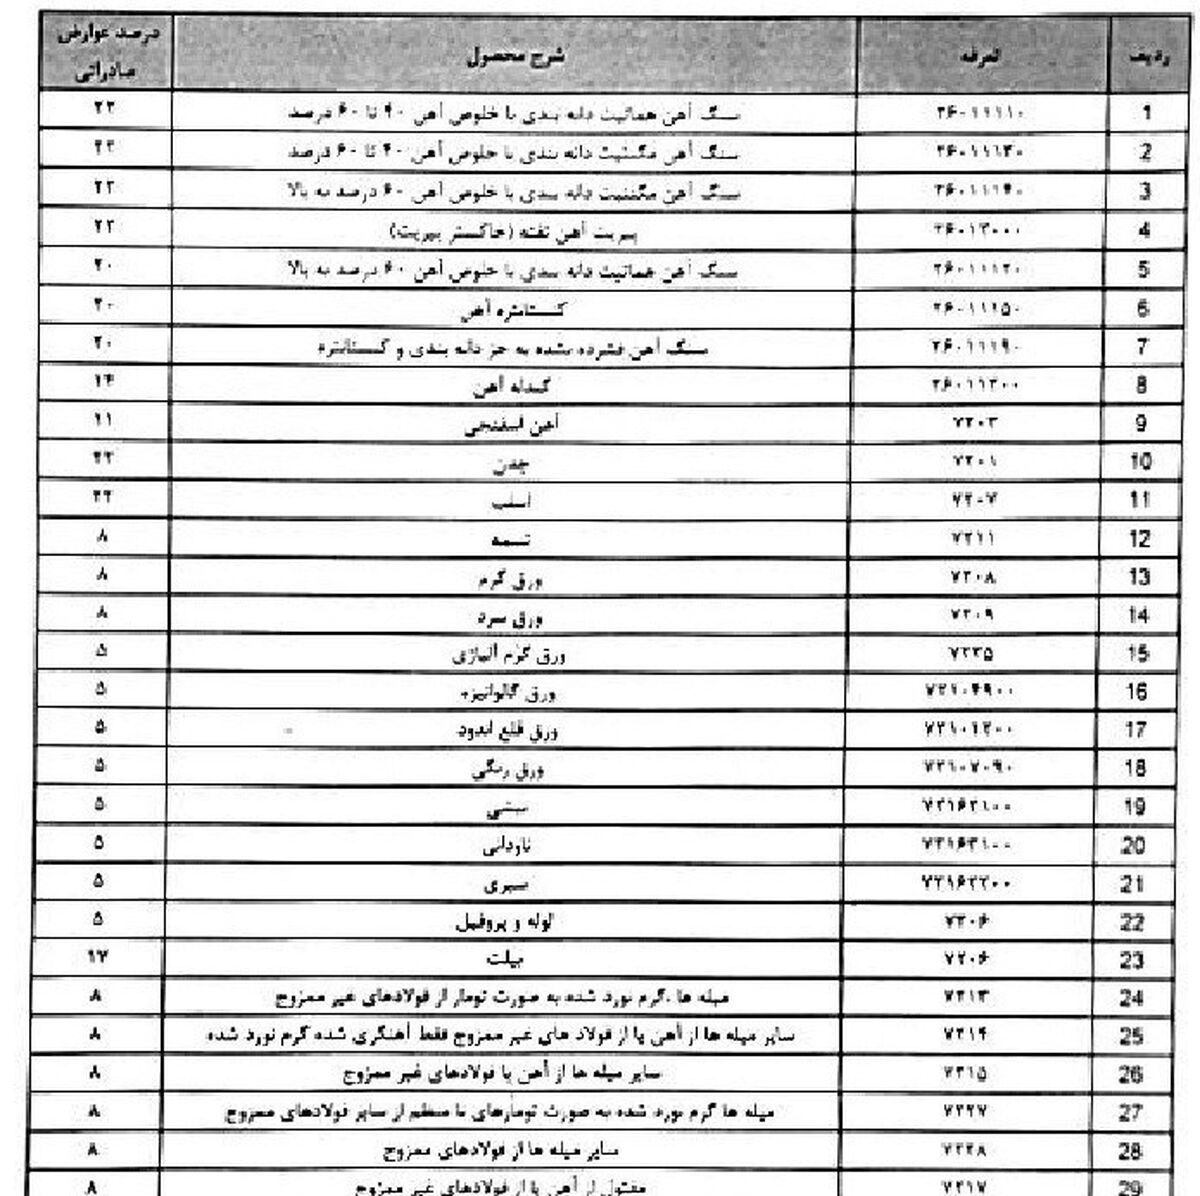 ردیف تعرفه شرح محصول درصد عوارض صادراتی
1 ۲۶۰۱۱۱۱۰ سنگ آهن هماتیت دانه بندی با خلوص آهن ۴۰ تا ۶۰ درصد
2 ۲۶۰۱۱۱۳۰ سنگ آهن مگنتیت دانه بندی با خلوص آهن ۴۰ تا ۶۰ درصد
3 ۲۶۰۱۱۱۴۰ سنگ آهن مگنتیت دانه بندی با خلوص آهن ۶۰ درصد به بالا
4 پیریت آهن تفته (خاکستر پیریت)
5 ۲۶۰۱۱۱۲۰ سنگ آهن هماتیت دانه بندی با خلوص آهن ۶۰ درصد به بالا ۲۰
6 ۲۶۰۱۱۱۵۰ کنسانتره آهن ۲۰
7 ۲۶۰۱۱۱۹۰ سنگ آهن فشرده نشده به جز دانه بندی و کنسانتره ۲۰
8 ۲۶۰۱۱۲۰۰ گندله آهن
9 ۷۲۰۳ آهن اسفنجی ۱۱
10 ۷۲۰۱ چدن
11 ۷۲۰۷ اسلب
12 ۷۲۱۱ تسمه ۸
13 ۷۲۰۸ ورق گرم ۸
14 ۷۲۰۹ ورق سرد ۸
15 ۷۲۲۵ ورق گرم آلیاژی ۵
16 ۷۲۱۰۴۹۰۰ ورق گالوانیزه ۵
17 ۷۲۱۰۱۲۰۰ ورق قلع اندود ۵
18 ۷۲۱۰۷۰۹۰ ورق رنگی ۵
19 نبشی ۵
20 ۷۲۱۶۳۱۰۰ ناودانی ۵
21 ۵
22 ۷۳۰۶ لوله و پروفیل ۵
23 ۷۲۰۶ بیلت ۱۷
24 ۷۲۱۳ میله ها ،گرم نورد شده به صورت تومار از فولادهای غیر ممزوج ۸
25 ۷۲۱۴ سایر میله ها از آهن یا از فولاد های غیر ممزوج فقط آهنگری شده گرم نورد شده ۸
26 ۷۲۱۵ سایر میله ها از آهن یا فولادهای غیر ممزوج ۸
27 ۷۲۲۷ میله ها گرم نورد شده به صورت تومارهای نا منظم از سایر فولادهای ممزوج ۸
28 ۷۲۲۸ سایر میله ها از فولادهای ممزوج ۸
29 ۷۲۱۷ مفتول از آهن یا از فولادهای غیر ممزوج ۸